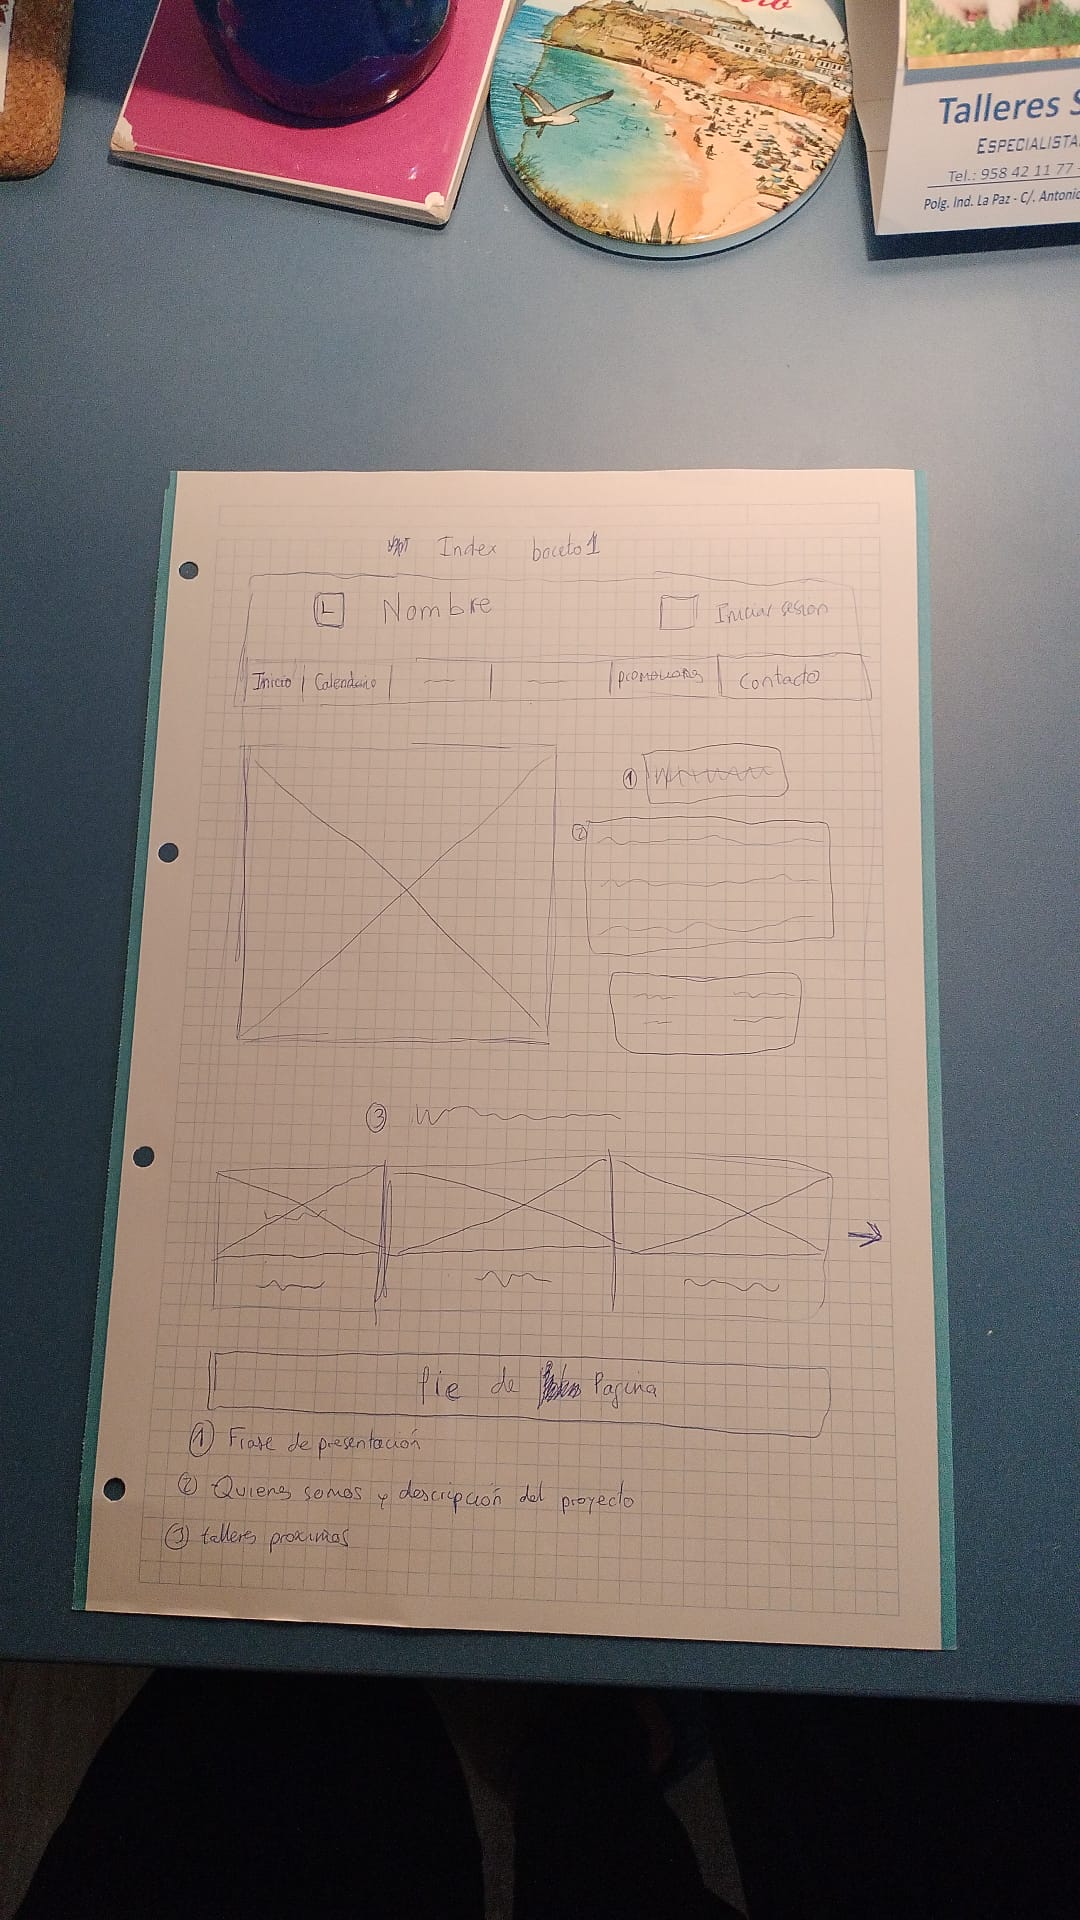 Talleres S
ESPECIALISTA
Tel.: 958 42 11 77 -
Polg. Ind. La Paz - C/. Antonio
Index boceto 1
L Nombre Iniciar sesion
Inicio Calendario promociones Contacto
1
2
3
pie de Pagina
1 Frase de presentación
2 Quienes somos y descripción del proyecto
3 talleres proximos